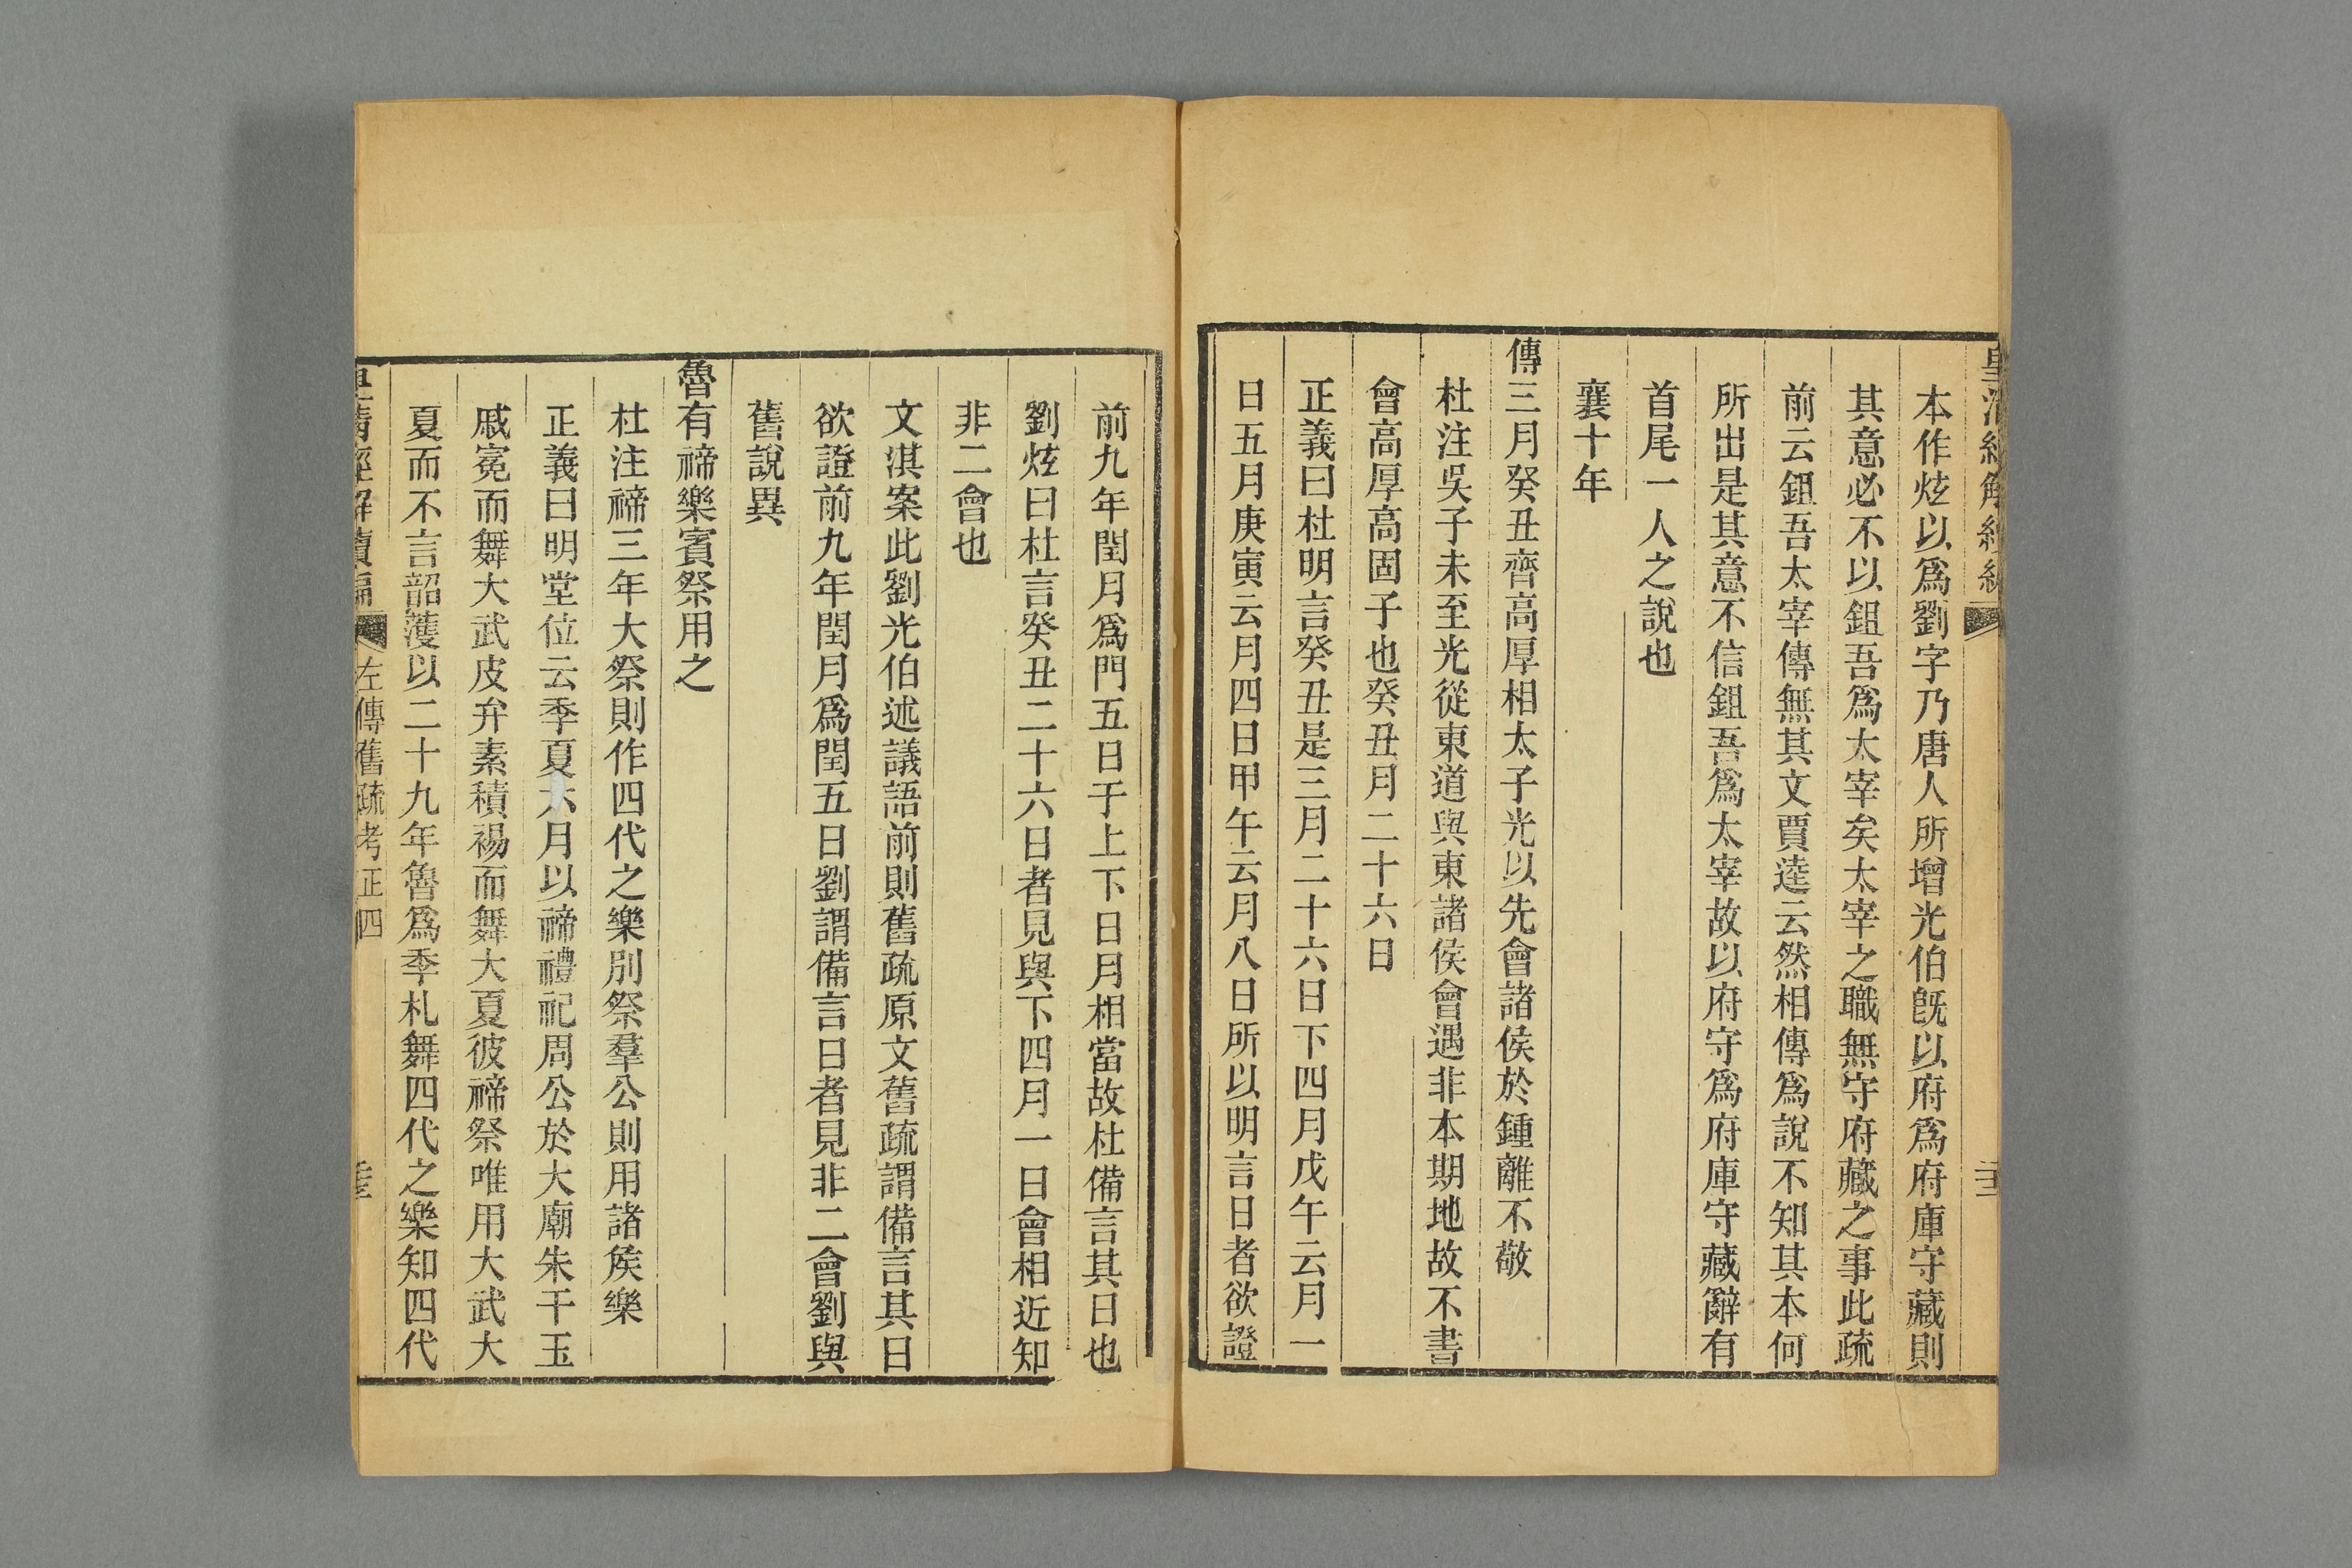 皇清經解續編
本作炫以爲劉字乃唐人所增光伯旣以府爲府庫守藏則
其意必不以鉏吾爲太宰矣太宰之職無守府藏之事此疏
前云鉏吾太宰傳無其文賈逵云然相傳爲說不知其本何
所出是其意不信鉏吾爲太宰故以府守爲府庫守藏辭有
首尾一人之說也
襄十年
傳三月癸丑齊高厚相太子光以先會諸侯於鍾離不敬
杜注吳子未至光從東道與東諸侯會遇非本期地故不書
會高厚高固子也癸丑月二十六日
正義曰杜明言癸丑是三月二十六日下四月戊午云月一
日五月庚寅云月四日甲午云月八日所以明言日者欲證
前九年閏月爲門五日于上下日月相當故杜備言其日也
劉炫曰杜言癸丑二十六日者見與下四月一日會相近知
非二會也
文淇案此劉光伯述議語前則舊疏原文舊疏謂備言其日
欲證前九年閏月爲閏五日劉謂備言日者見非二會劉與
舊說異
魯有禘樂賓祭用之
杜注禘三年大祭則作四代之樂別祭羣公則用諸矦樂
正義曰明堂位云季夏六月以禘禮祀周公於大廟朱干玉
戚冕而舞大武皮弁素積裼而舞大夏彼禘祭唯用大武大
夏而不言韶濩以二十九年魯爲季札舞四代之樂知四代
皇清經解續編
左傳舊疏考正四